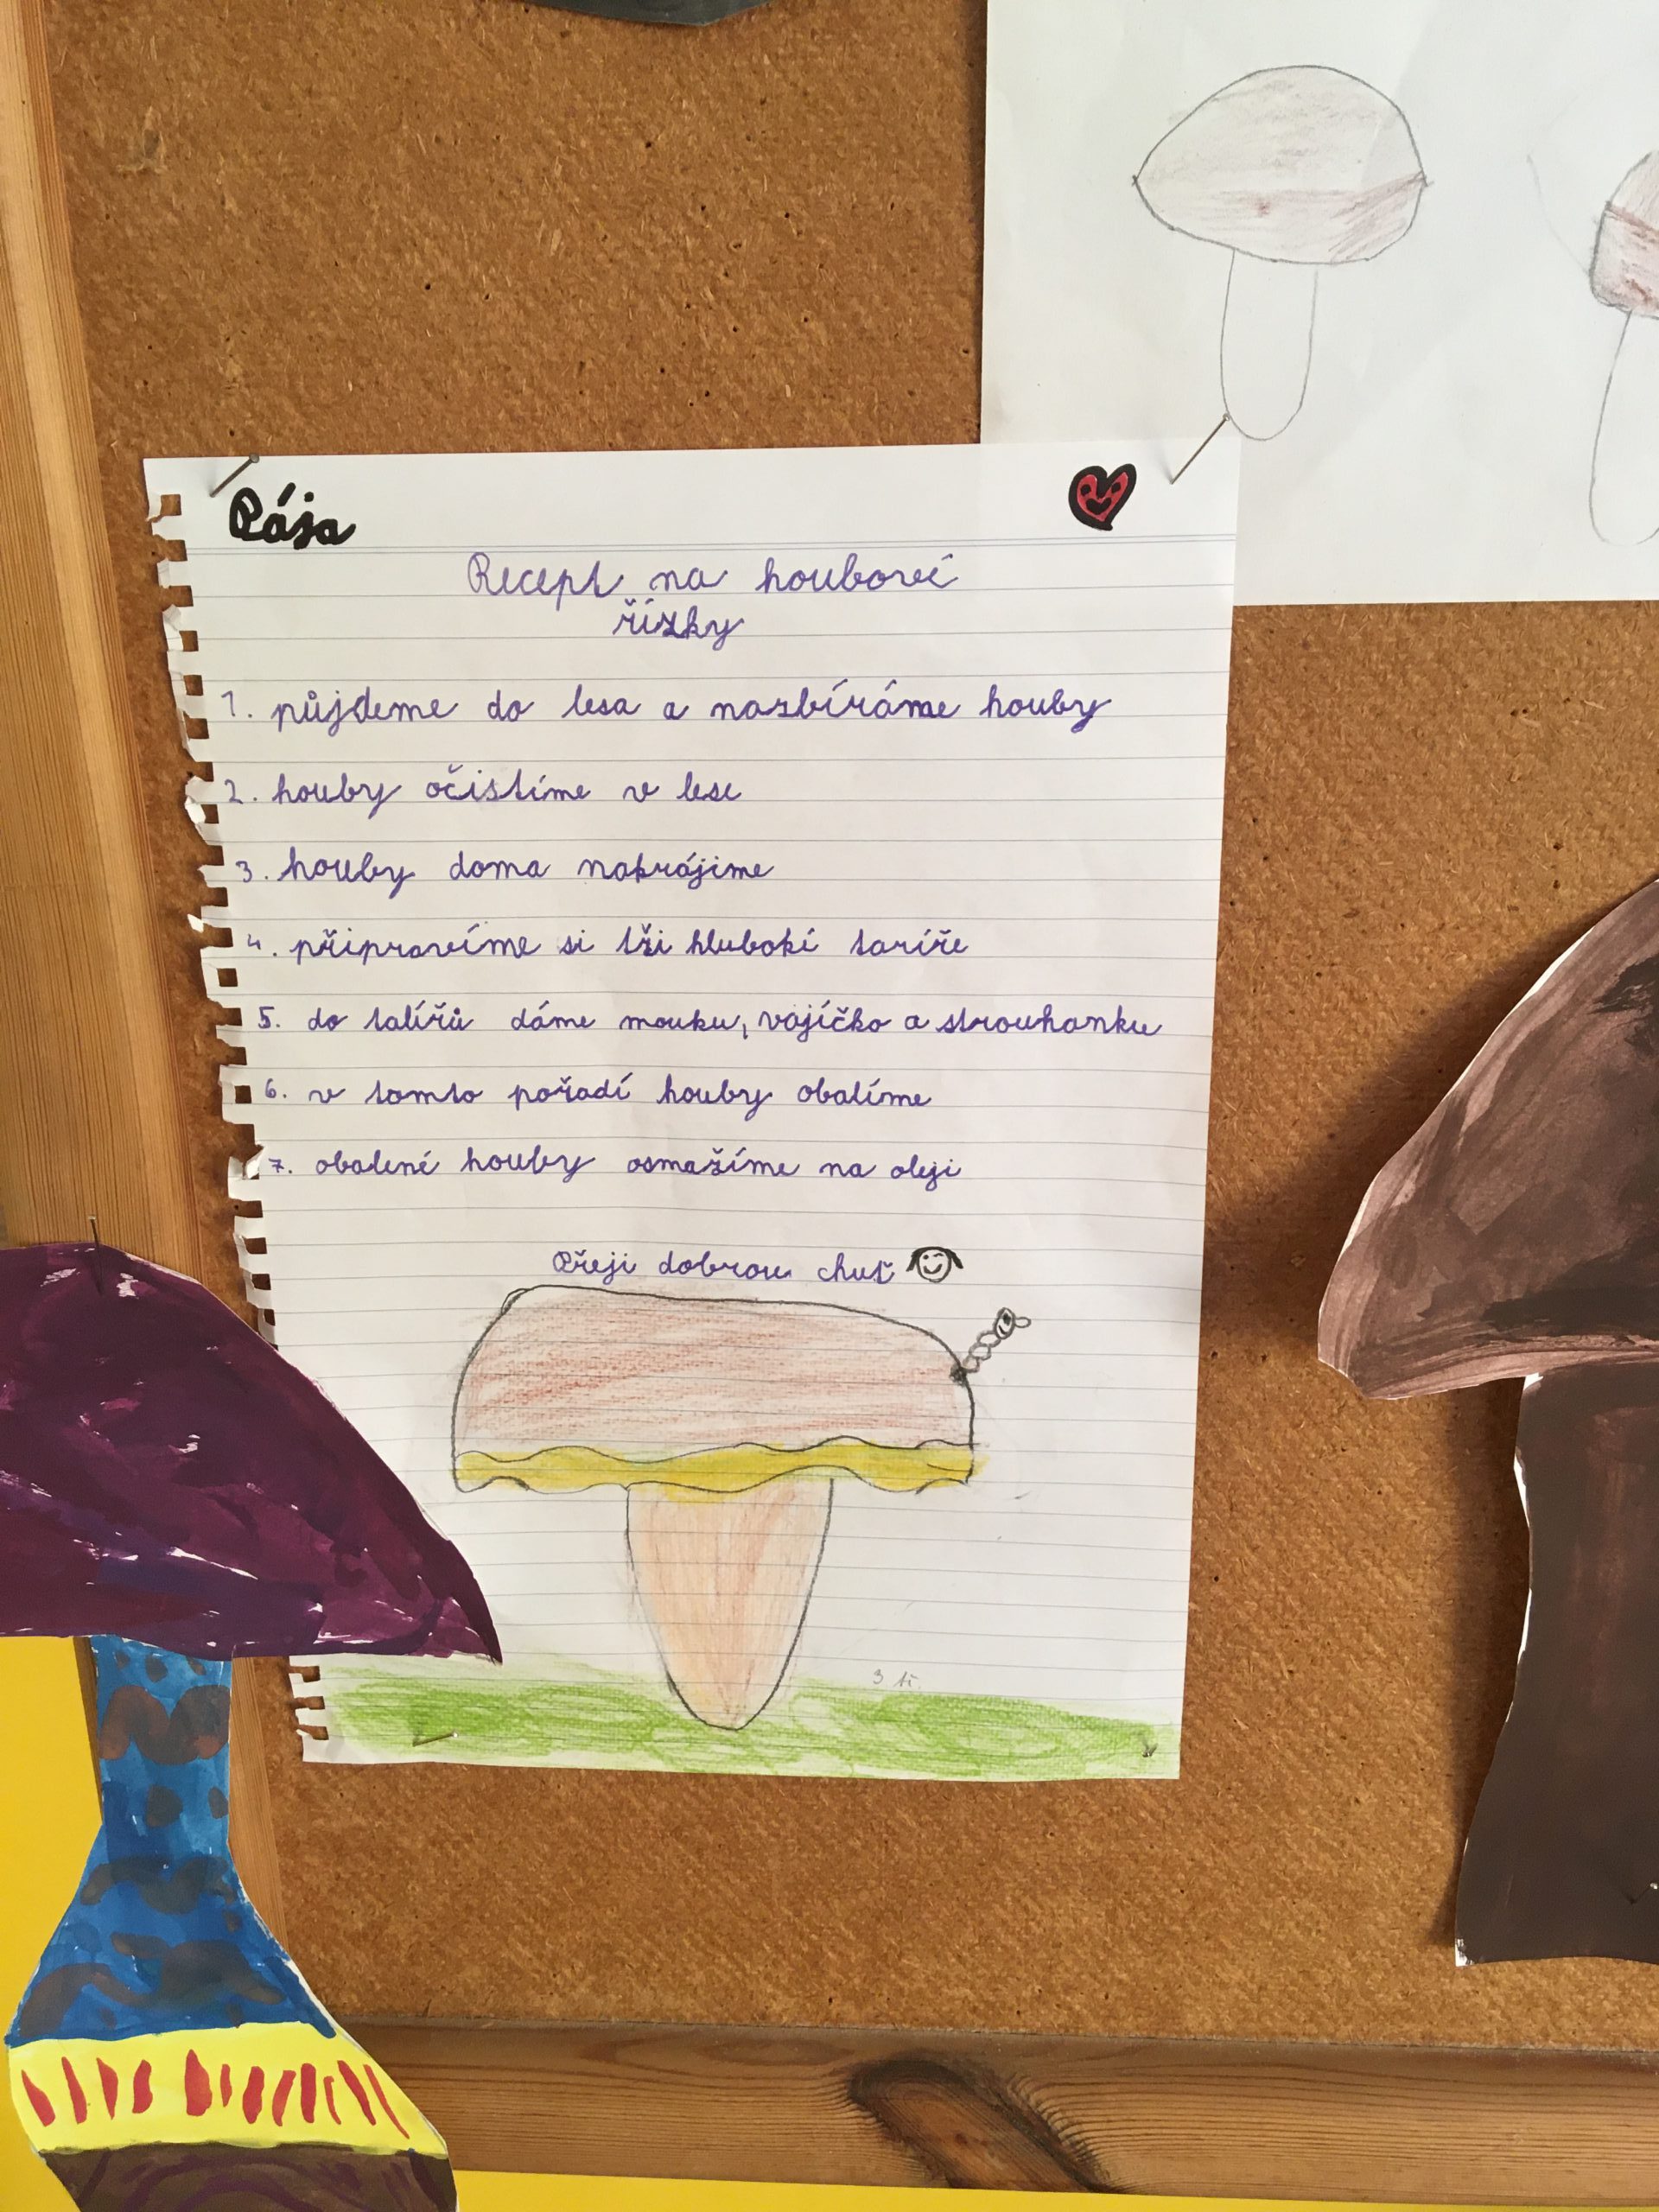 Pája
Recept na houboví
řízky
1. půjdeme do lesa a nazbíráme houby
2. houby očistíme v lese
3. houby doma nakrájime
4. připravíme si tři hlubokí taríře
5. do talířů dáme mouku, vajíčko a strouhanku
6. v tomto pořadí houby obalíme
7. obalené houby osmažíme na oleji
Přeji dobrou chuť
3 tř.